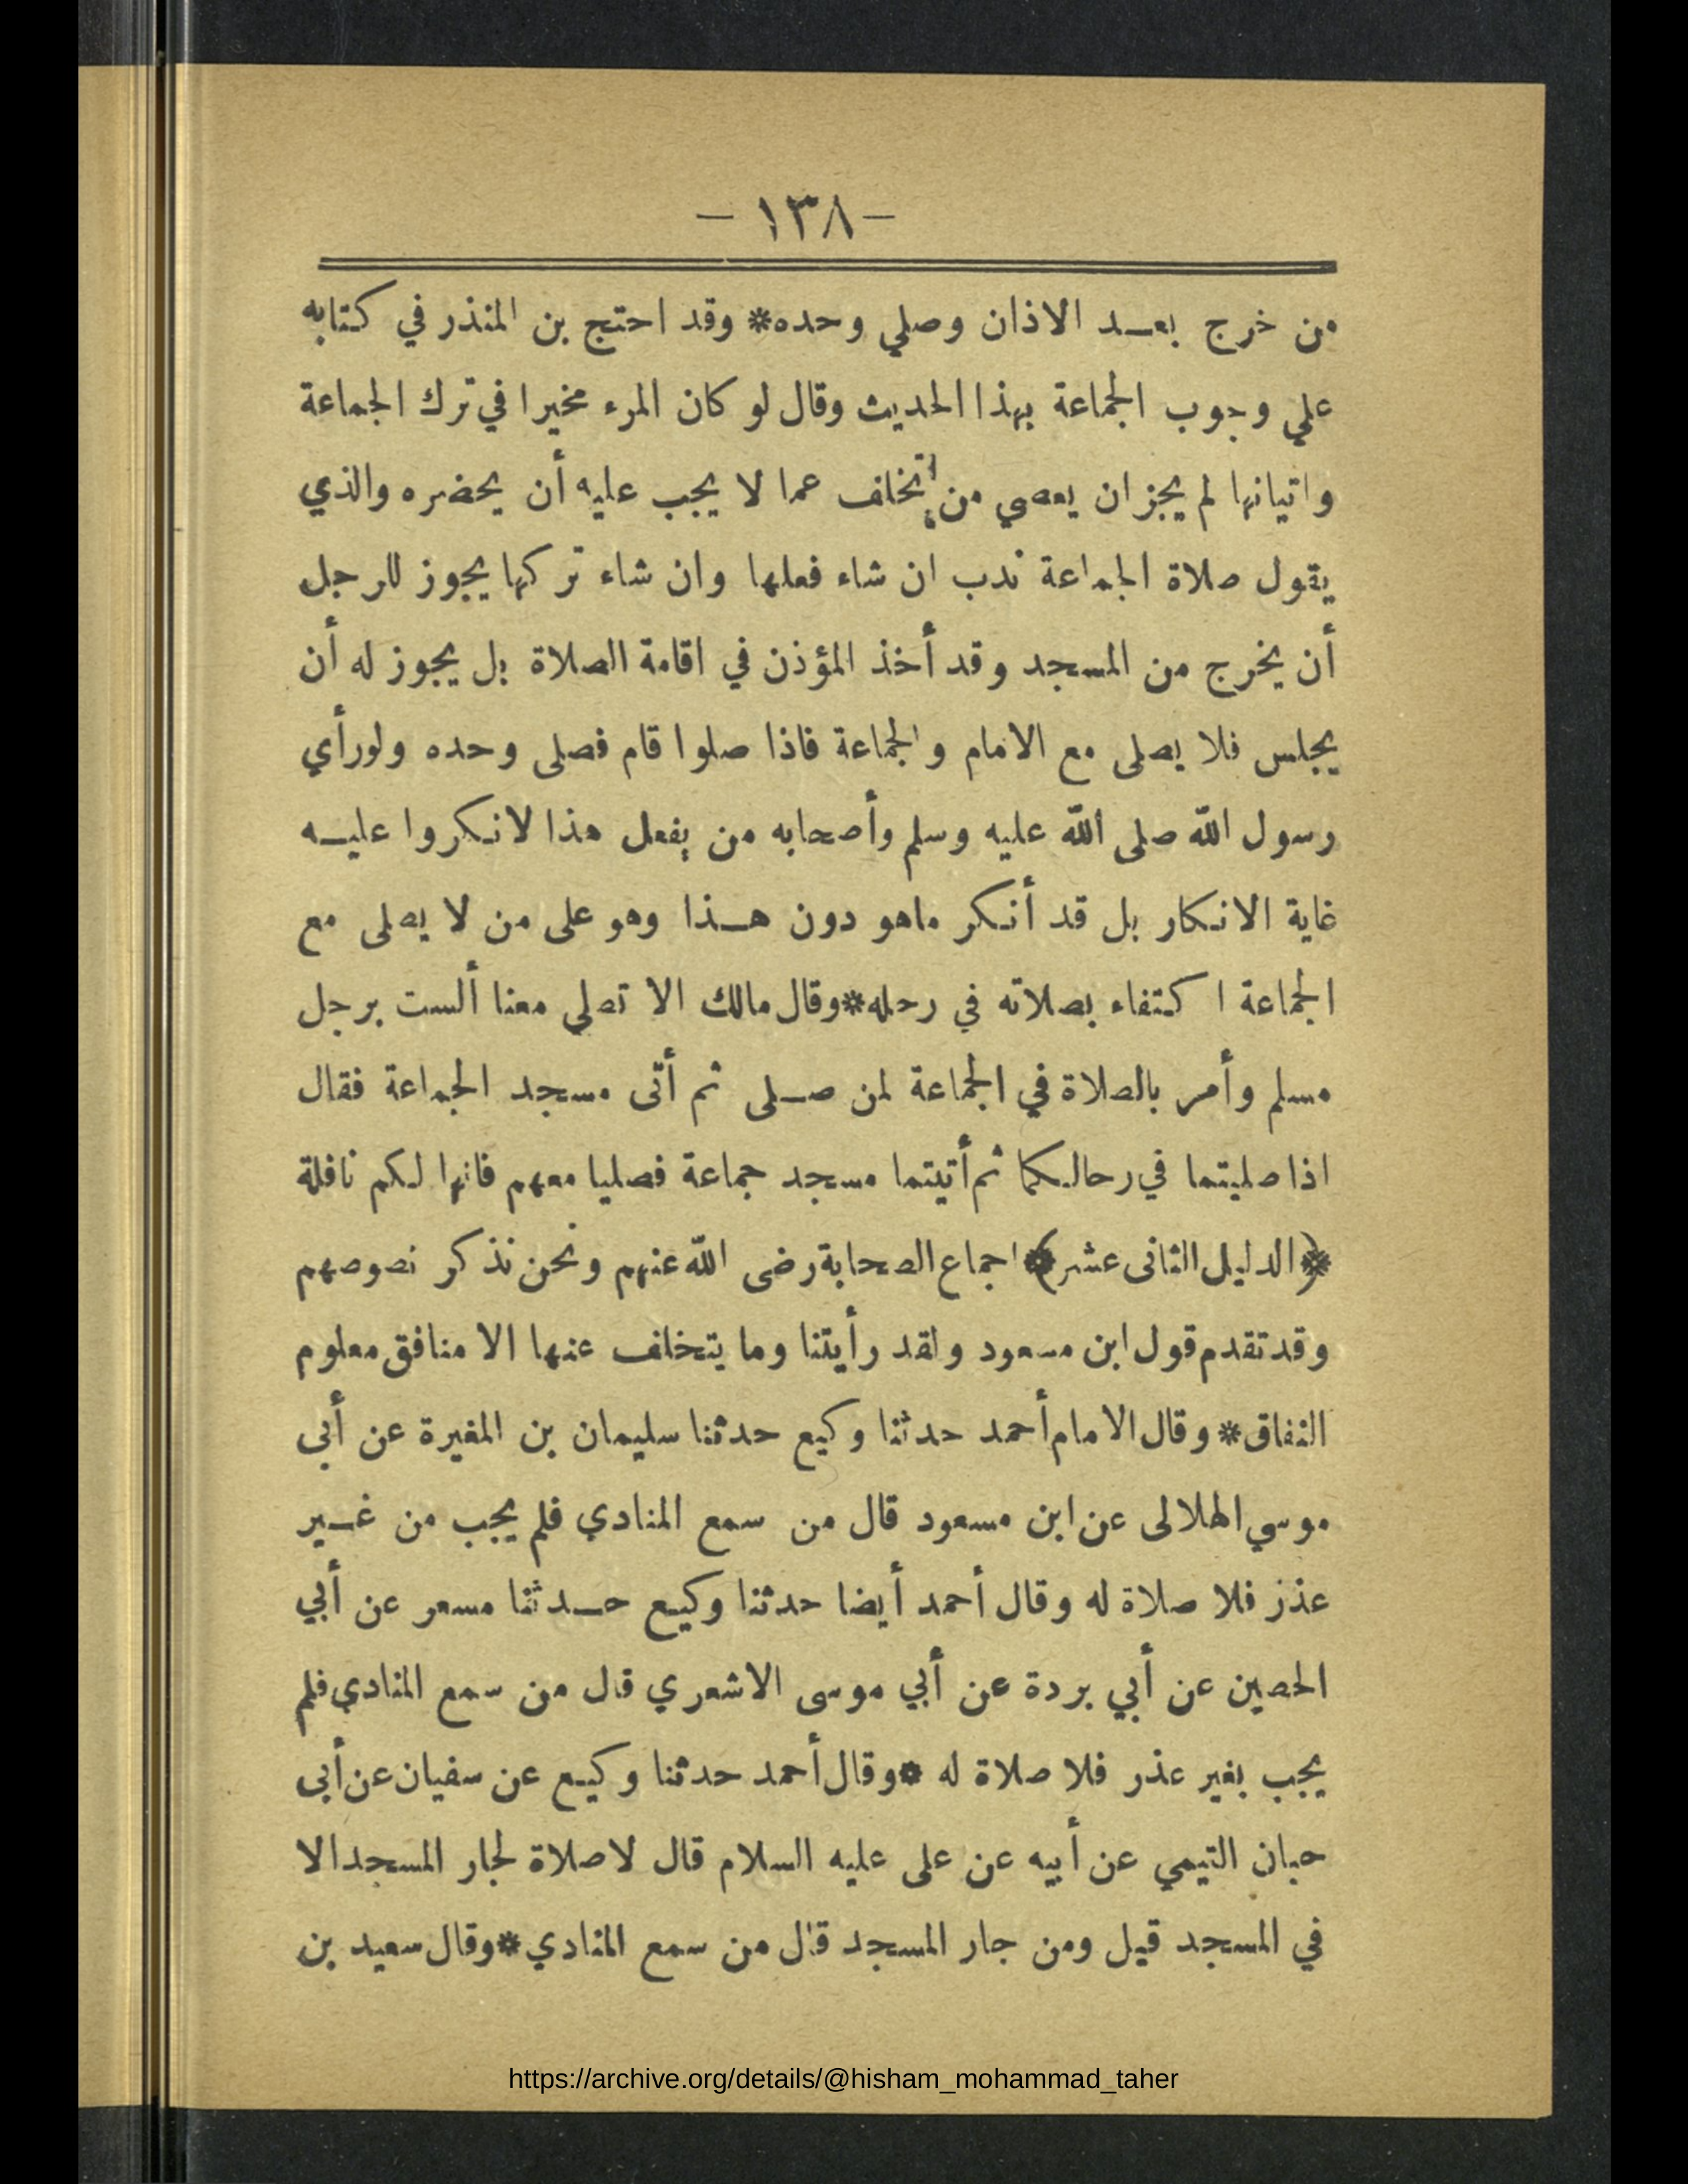 – ١٣٨ –
من خرج بعد الاذان وصلي وحده* وقد احتج بن المنذر في كتابه
علي وجوب الجماعة بهذا الحديث وقال لو كان المرء مخيرا في ترك الجماعة
واتيانها لم يجز ان يعصي من تخلف عما لا يجب عليه أن يحضره والذي
يقول صلاة الجماعة ندب ان شاء فعلها وان شاء تركها يجوز للرجل
أن يخرج من المسجد وقد أخذ المؤذن في اقامة الصلاة بل يجوز له أن
يجلس فلا يصلى مع الامام والجماعة فاذا صلوا قام فصلى وحده ولو رأي
رسول الله صلى الله عليه وسلم وأصحابه من يفعل هذا لانكروا عليه
غاية الانكار بل قد أنكر ماهو دون هذا وهو على من لا يصلى مع
الجماعة اكتفاء بصلاته في رحله*وقال مالك الا تصلي معنا ألست برجل
مسلم وأمر بالصلاة في الجماعة لمن صلى ثم أتى مسجد الجماعة فقال
اذا صليتما في رحالكما ثم أتيتما مسجد جماعة فصليا معهم فانها لكم نافلة
﴿الدليل الثانى عشر﴾ اجماع الصحابة رضى الله عنهم ونحن نذكر نصوصهم
وقد تقدم قول ابن مسعود ولقد رأيتنا وما يتخلف عنها الا منافق معلوم
النفاق* وقال الامام أحمد حدثنا وكيع حدثنا سليمان بن المغيرة عن أبي
موسي الهلالى عن ابن مسعود قال من سمع المنادي فلم يجب من غير
عذر فلا صلاة له وقال أحمد أيضا حدثنا وكيع حدثنا مسعر عن أبي
الحصين عن أبي بردة عن أبي موسى الاشعري قال من سمع المنادي فلم
يجب بغير عذر فلا صلاة له *وقال أحمد حدثنا وكيع عن سفيان عن أبى
حبان التيمي عن أبيه عن على عليه السلام قال لا صلاة لجار المسجد الا
في المسجد قيل ومن جار المسجد قال من سمع المنادي*وقال سعيد بن
https://archive.org/details/@hisham_mohammad_taher